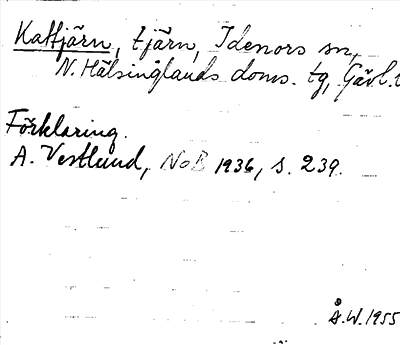 Kattjärn, tjärn, Idenors sn,
N. Hälsinglands doms. tg, Gävl. l
Förklaring.
A. Vestlund, NoB 1936, s. 239.
Å.W. 1955